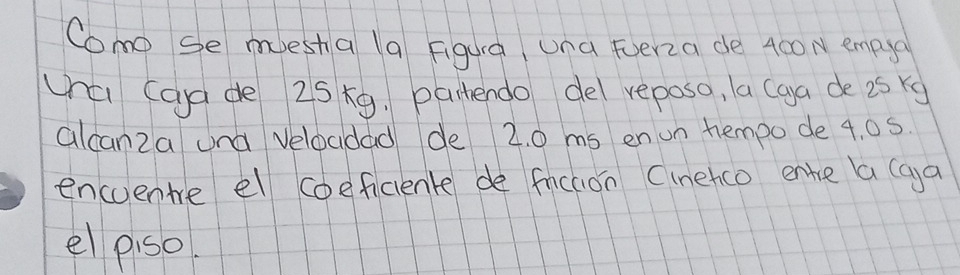 Como se muestra la Figura, una Fuerza de 400N empuja
una caja de 25 kg. partiendo del reposo, la caja de 25 kg
alcanza una velocidad de 2.0 ms en un tiempo de 4.0s.
encuentre el coeficiente de fricción Cinetico entre la caja
el piso.